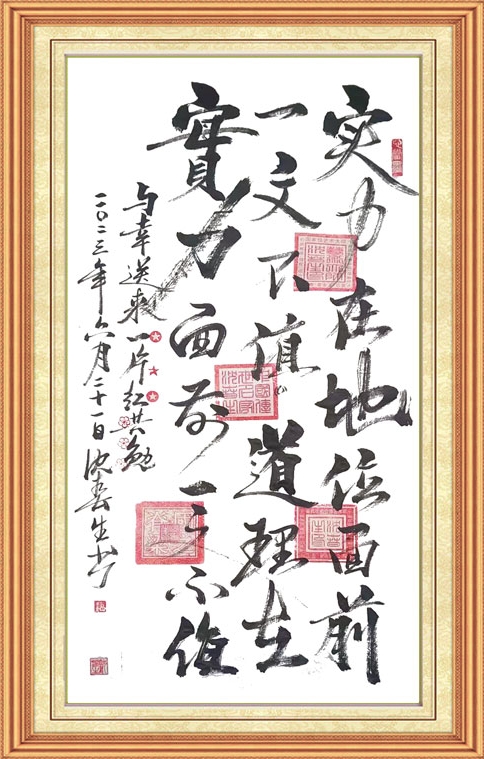 实力在地位面前
一文不值道理在
實力面前一文不值
与幸送来一片红共勉
二〇二三年六月二十一日沈春生书